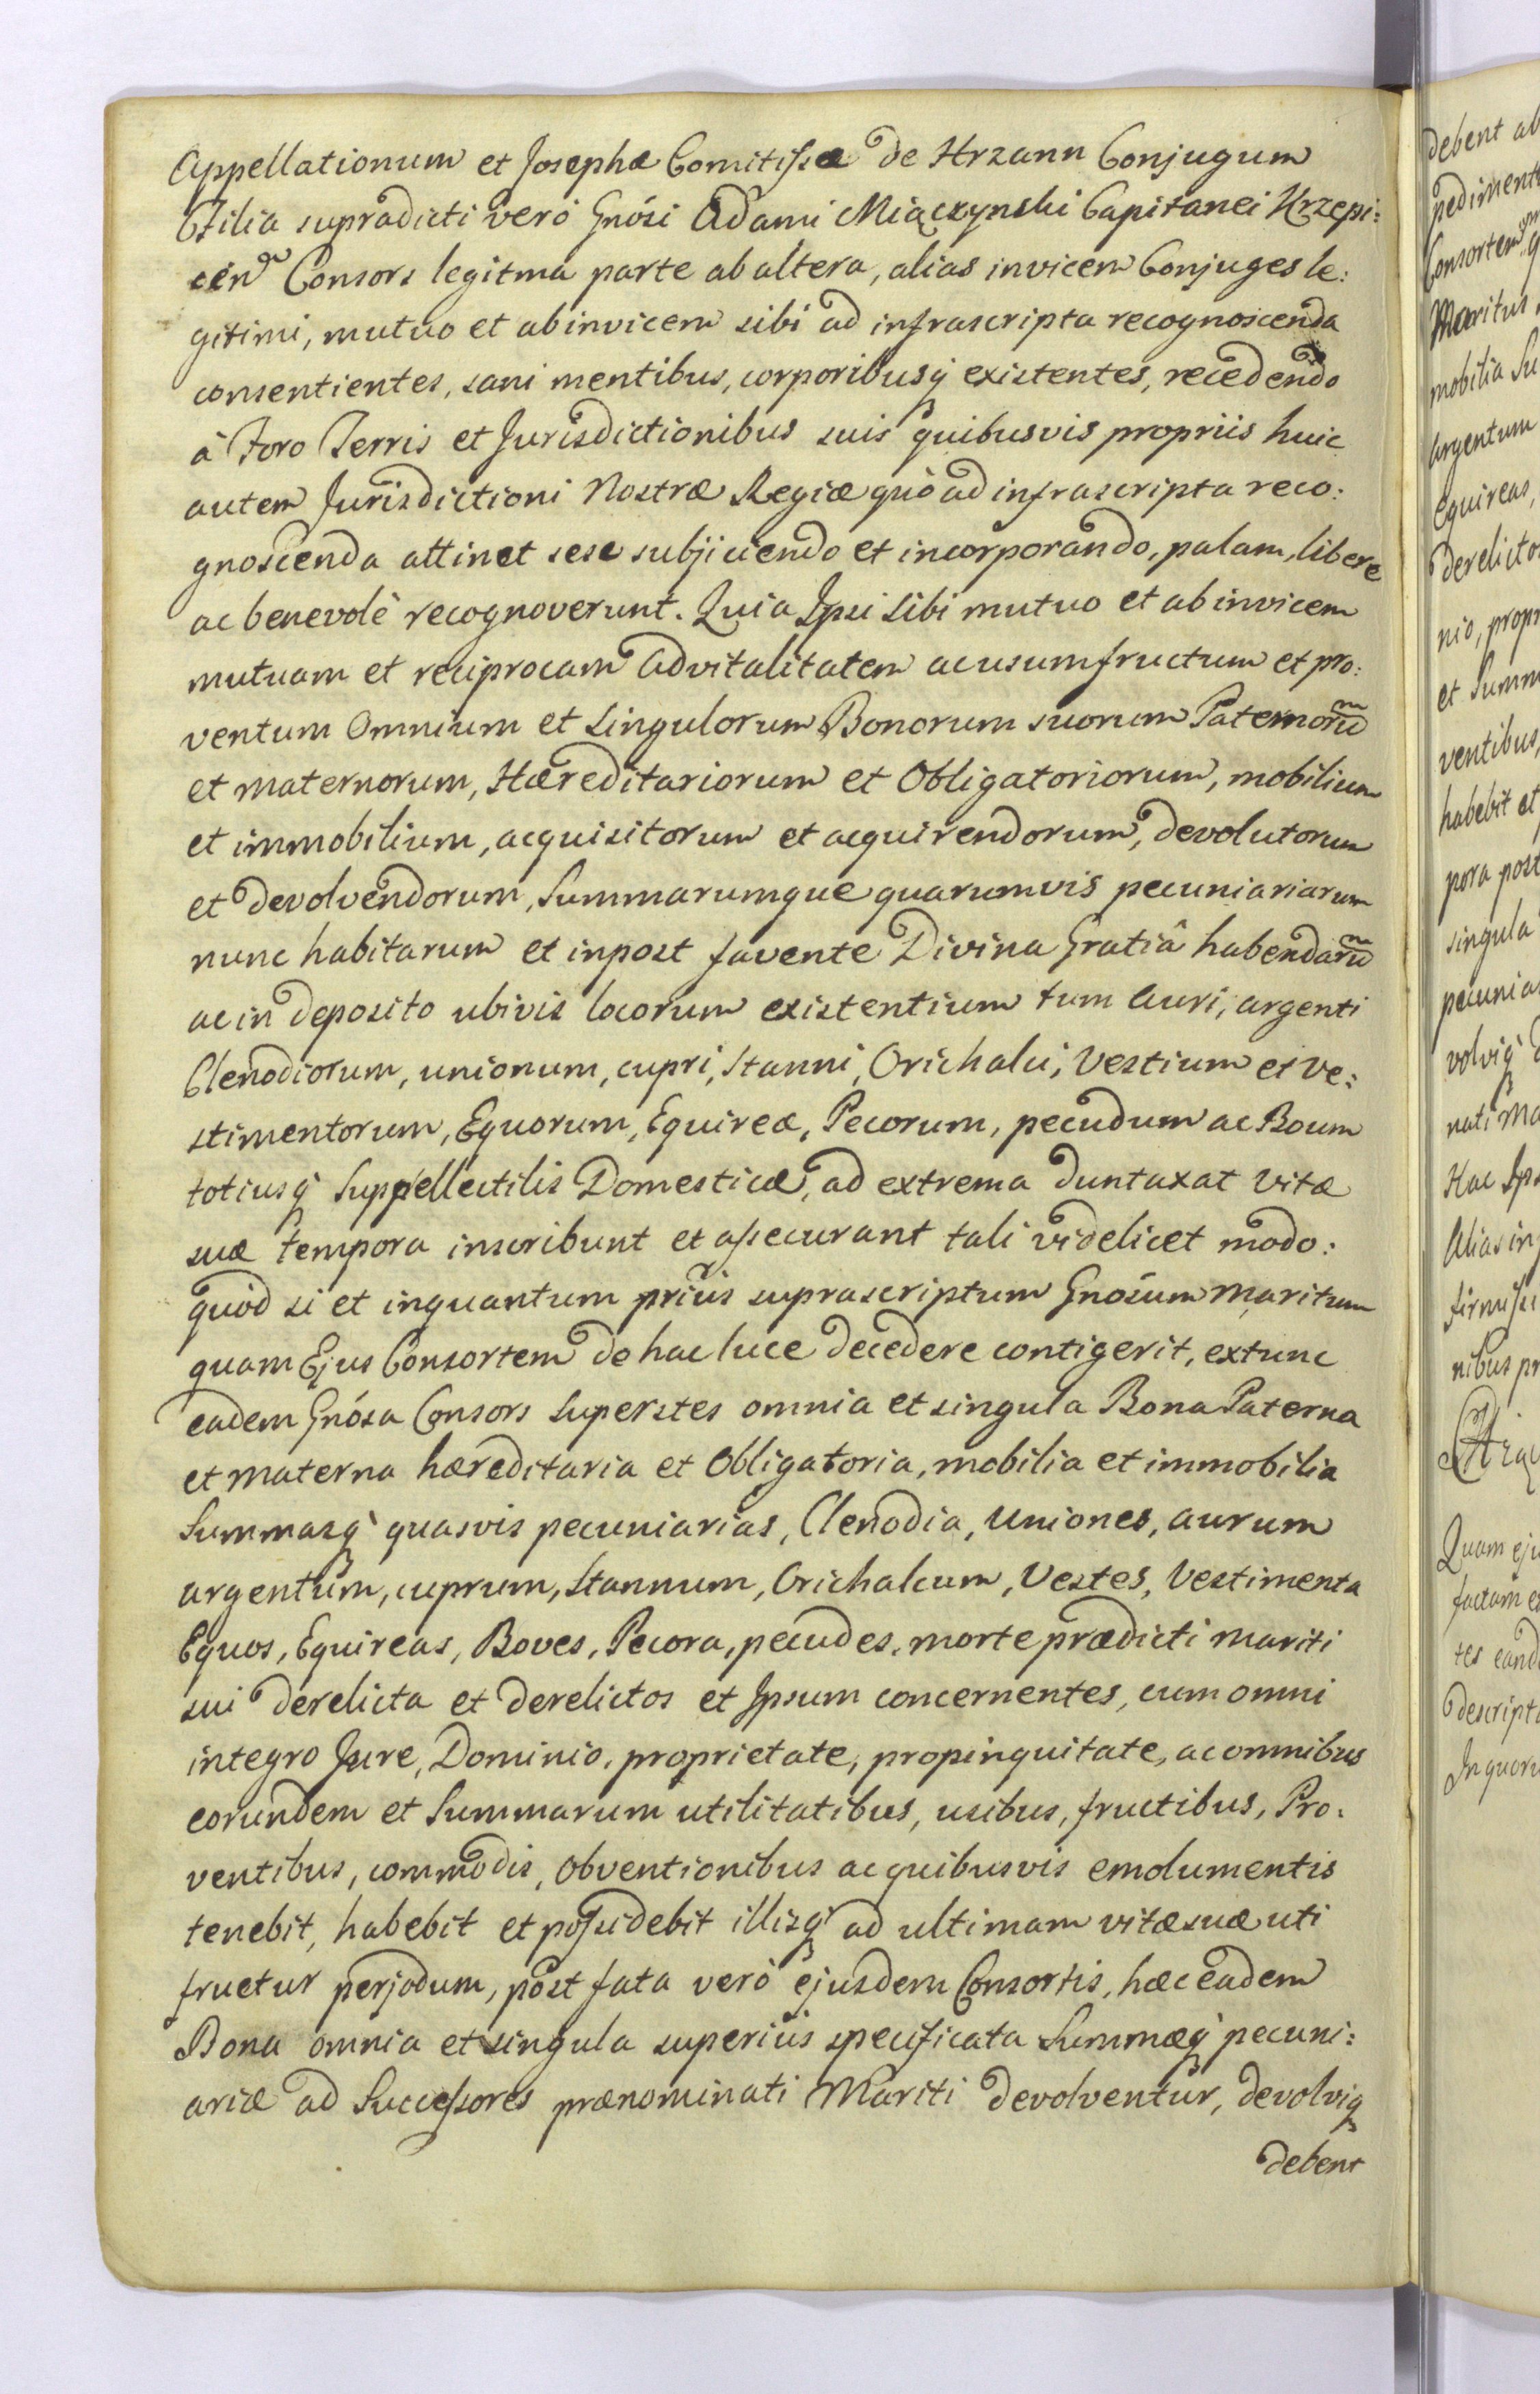 Appellationum et Josephæ Comitissæ de Hrzann Conjugum
Filia supradicti verò Gnósi Adami Miączynski Capitanei Krzepi:
cén Consors legitma parte ab altera, alias invicem Conjuges le:
gitimi, mutuo et ab invicem sibi ad infrascripta recognoscenda
consentientes, sani mentibus, corporibusq́ existentes, recedendo
à Foro Terris et Jurisdictionibus suis quibusvis propriis huic
autem Jurisdictioni Nostræ Regiæ quò ad infrascripta reco:
gnoscenda attinet sese subjiciendo et incorporando, palam, libere
ac benevolè recognoverunt. Quia Ipsi sibi mutuo et ab invicem
mutuam et reciprocam advitalitatem ac usumfructum et pro:
ventum Omnium et singulorum Bonorum suorum Paternorum
et maternorum, Hæreditariorum et Obligatoriorum, mobilium
et immobilium, acquisitorum et acquirendorum, devolutorum
et devolvendorum, Summarumque quarumvis pecuniariarum
nunc habitarum et inpost favente Divina Gratiâ habendarum
ac in deposito ubivis locorum existentium tum Auri, argenti
Clenodiorum, unionum, cupri, Stanni, Orichalci, Vestium et Ve:
stimentorum, Equorum, Equireæ, Pecorum, pecudum ac Boum
totiusq́ Suppellectilis Domesticæ, ad extrema duntaxat vitæ
suæ tempora inscribunt et assecurant tali videlicet modo:
quòd si et inquantum priùs suprascriptum Gnósum Maritum
quam Ejus Consortem de hac luce decedere contigerit, extunc
eadem Gnósa Consors Superstes omnia et singula Bona Paterna
et Materna hæreditaria et Obligatoria, mobilia et immobilia
Summasq́ quasvis pecuniarias, Clenodia, Uniones, aurum
argentum, cuprum, Stannum, Orichalcum, Vestes, Vestimenta
Equos, Equireas, Boves, Pecora, pecudes, morte prædicti Mariti
sui derelicta et derelictos et Ipsum concernentes, cum omni
integro Jure, Dominio, proprietate, propinquitate, ac omnibus
eorundem et Summarum utilitatibus, usibus, fructibus, Pro:
ventibus, commodis, obventionibus ac quibusvis emolumentis
tenebit, habebit et possidebit illisq́ ad ultimam vitæ suæ uti
fruetur perjodum, post fata verò ejusdem Consortis, hæc eadem
Bona omnia et singula superiùs specificata Summæq́ pecuni:
ariæ ad Successores prænominati Mariti devolventur, devolviq
debent
debent ab
pediment
Consortem
Maritus
mobilia Su
argentum
equireas,
derelictos
nio, propr
et Summ
ventibus,
habebit et
pora post
singula
pecunia
volviq́
nati Ma
Hac Ips
Alias in
firmissi
nibus pr
Quam eju
factam e
tes eand
descripta
In quoru